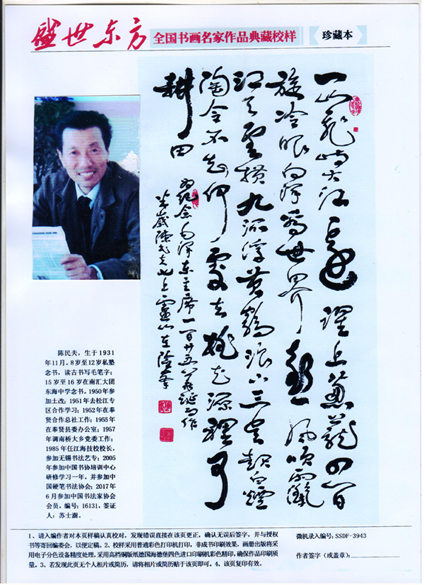 盛世东方
全国书画名家作品典藏校样
珍藏本
一山飛峙大江邊躍上葱蘢四百
旋冷眼向洋看世界熱風吹雨灑
江天雲橫九派浮黄鶴浪下三吴起白煙
陶令不知何處去桃花源裡可
耕田
陈民夫,生于1931
年11月。8岁至12岁私塾
念书,读古书写毛笔字;
15岁至16岁在南汇大团
东海中学念书。1950年参
加土改;1951年去松江专
区合作学习;1952年在奉
贤合作总社工作;1955年
在奉贤县委办公室;1957
年调南桥大乡党委工作;
1985年任江海技校校长,
参加无锡书法艺专;2005
年参加中国书协培训中心
研修学习一年,并参加中
国硬笔书法协会;2017年
6月参加中国书法家协会
会员;编号:16131。签证
人:苏士澍。
1、请入编作者对本页样稿认真校对,发现错误直接在该页更正,确认无误后签字,并与授权
书等寄回编委会,以便定稿。2、校样采用普通彩色打印机打印,非成书印刷效果。画册出版将采
用电子分色设备精度处理,采用高档铜版纸德国海德堡四色进口印刷机彩色精印,确保作品印刷质
量。3、若发现此页无个人相片或简历,请将相片或简历贴于该页即可。4、该页复印有效。
微机录入编号:SSDF-3943
作者签字(或盖章):